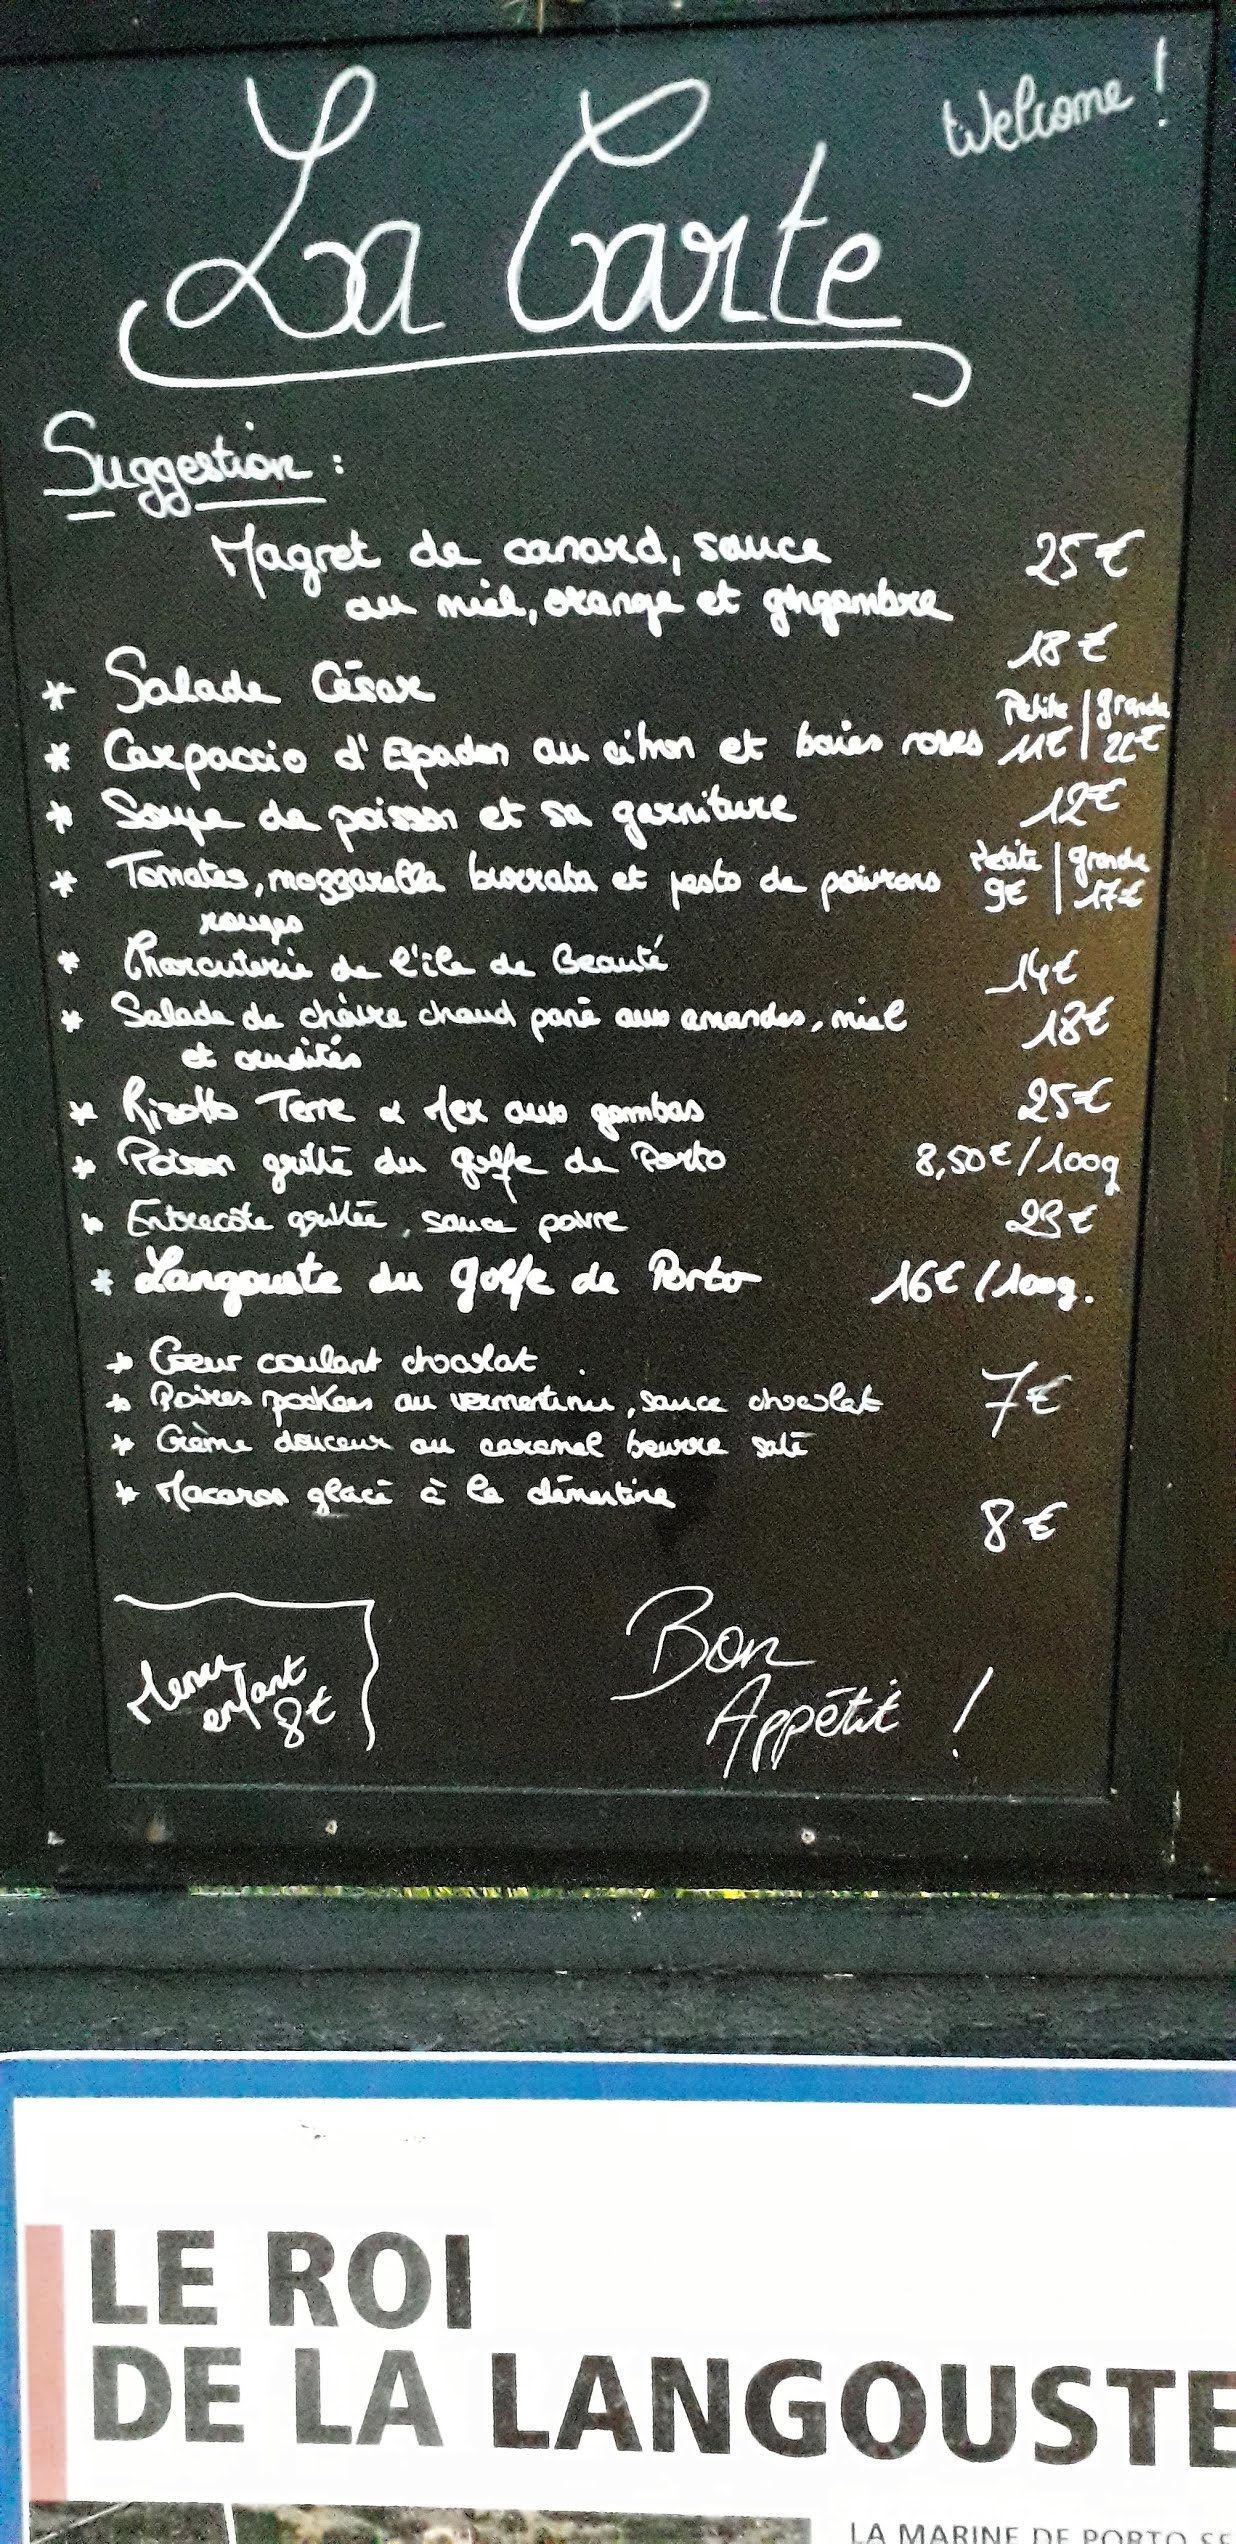 Welcome !
La Carte
Suggestion :
Magret de canard, sauce 25€
au miel, orange et gingembre
* Salade César 18€
Petite | grande
* Carpaccio d'Espadon au citron et baies roses 11€ | 22€
* Soupe de poisson et sa garniture 12€
* Tomates, mozzarella burrata et pesto de poivrons Petite | grande
rouges 9€ | 17€
* Charcuterie de l'île de Beauté 14€
* Salade de chèvre chaud pané aux amandes, miel 18€
et crudités
* Rizotto Terre & Mer aux gambas 25€
* Poisson grillé du golfe de Porto 8,50€/100g
* Entrecôte grillée, sauce poivre 23€
* Langouste du golfe de Porto 16€/100g.
* Cœur coulant chocolat
* Poires pochées au vermentinu, sauce chocolat 7€
* Crème douceur au caramel beurre salé
* Macaron glacé à la clémentine 8€
Menu
enfant
8€
Bon
Appétit !
LE ROI
DE LA LANGOUSTE
LA MARINE DE PORTO SE